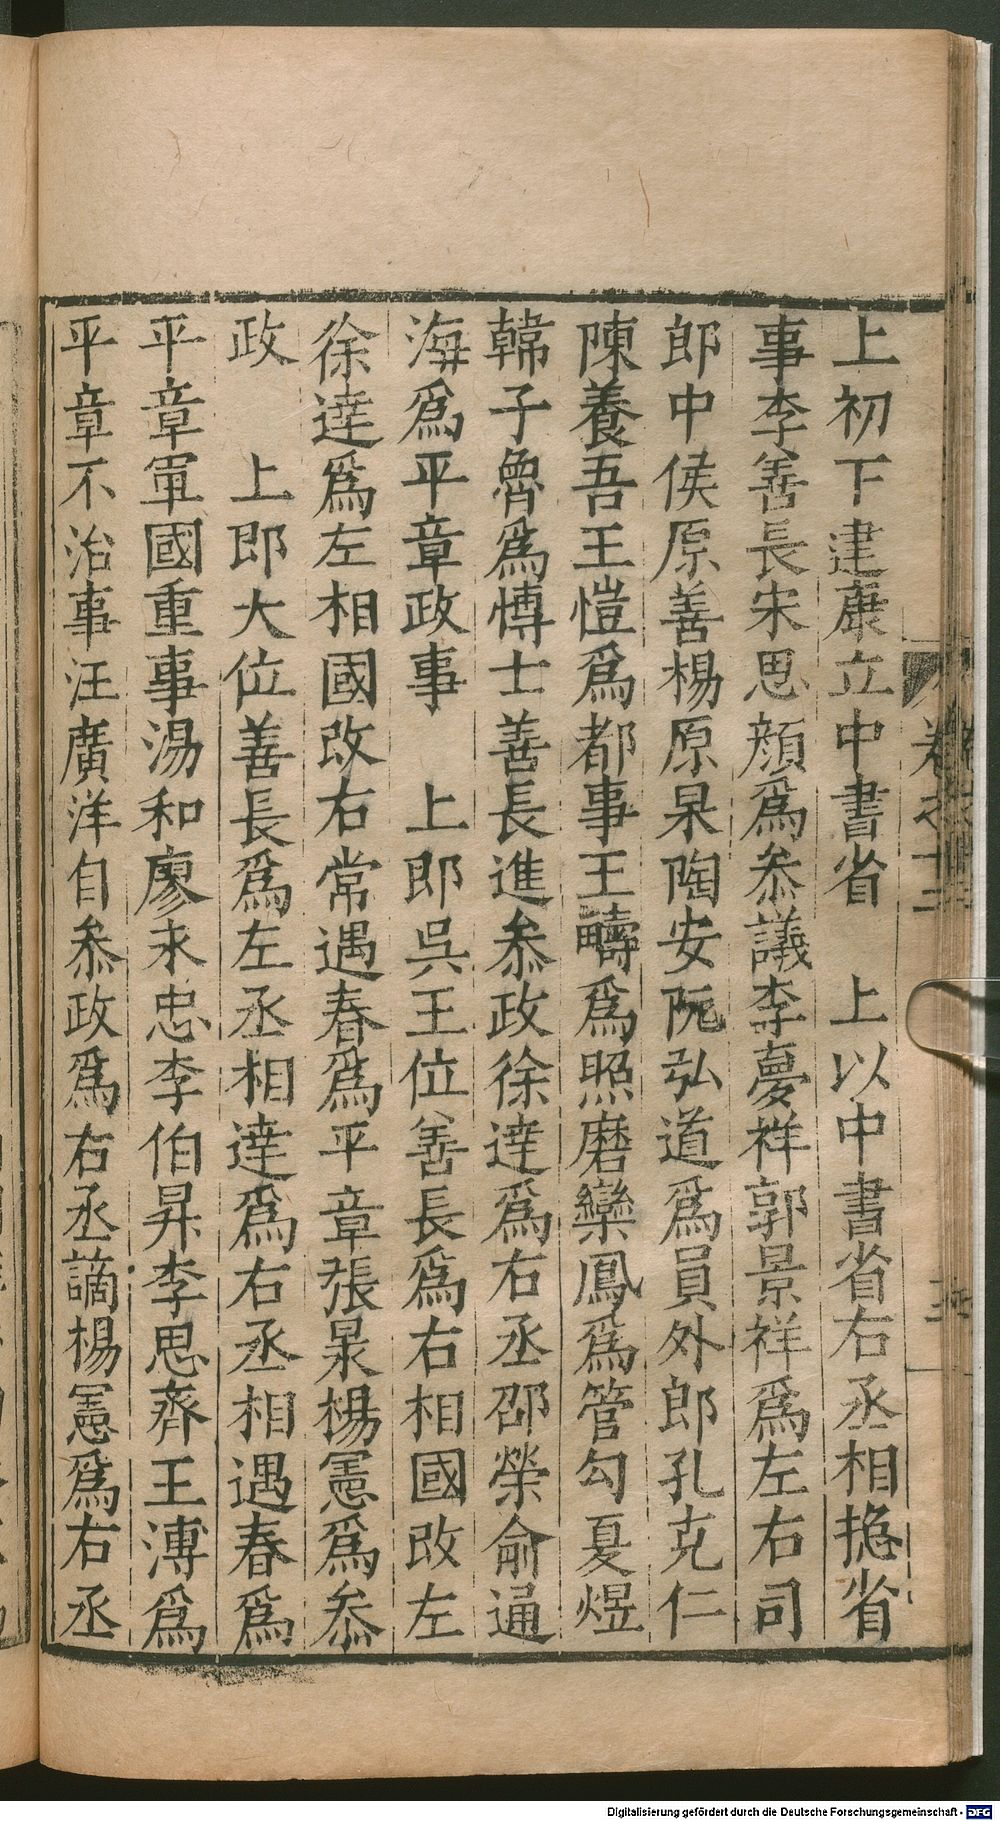 上初下建康立中書省　上以中書省右丞相捴省
事李善長宋思顔爲叅議李夢祥郭景祥爲左右司
郎中侯原善楊原杲陶安阮弘道爲員外郎孔克仁
陳養吾王愷爲都事王疇爲照磨欒鳳爲管勾夏煜
韓子魯爲博士善長進叅政徐達爲右丞邵榮俞通
海爲平章政事　上即吳王位善長爲右相國改左
徐達爲左相國改右常遇春爲平章張杲楊憲爲叅
政　上即大位善長爲左丞相達爲右丞相遇春爲
平章軍國重事湯和廖永忠李伯昇李思齊王溥爲
平章不治事汪廣洋自叅政爲右丞謫楊憲爲右丞
Digitalisierung gefördert durch die Deutsche Forschungsgemeinschaft - DFG